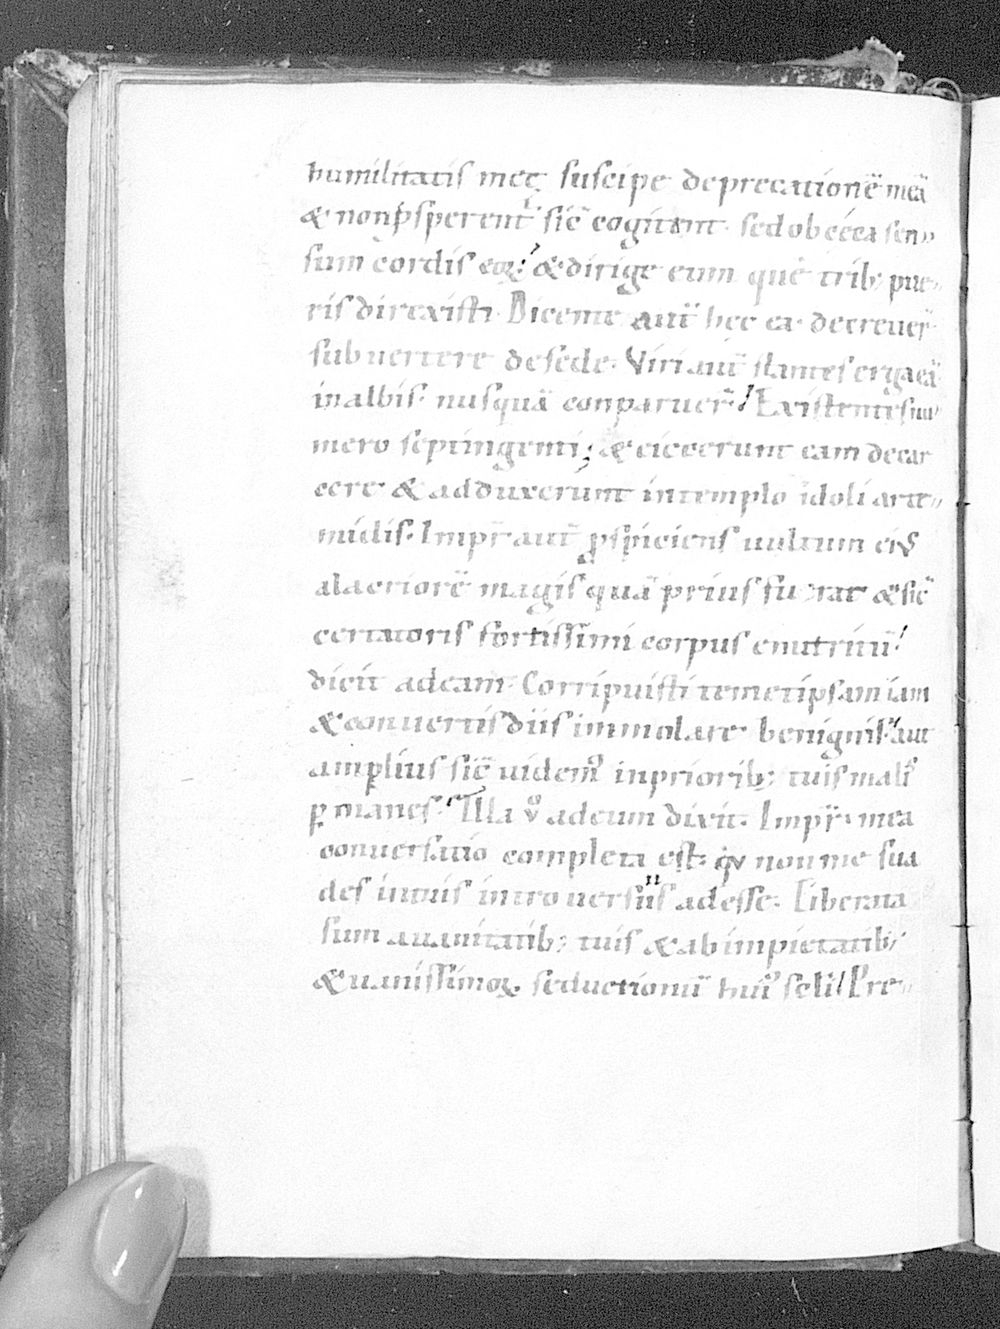 humilitatis meę suscipe deprecationē meā
& non ꝓsperent᷑ sic̄ cogitant. sed obceca sen-
sum cordis eoꝝ. & dirige eum quē trib; pue-
ris direxisti. Dicente aut̄ hec ea. decreuer̄
subuertere de sede. Viri aut̄ stantes erga eā
in albis. nusquā conparuer̄. Existentes nu-
mero septingenti; & eiecerunt eam de car
cere & adduxerunt in templo idoli arte-
midis. Impr̄ aut̄ ꝓspiciens uultum eiꝰ
alacriorē magis quā prius fuerat & sic̄
certatoris fortissimi corpus enutritū.
dicit ad eam. Corripuisti temetipsam iam
& conuertis diis immolare benignis. aut
amplius sic̄ uidemꝰ in priorib; tuis malis
ꝑmanes. Illa v̊ ad eum dixit. Impr̄. mea
conuersatio completa est. qӷ non me sua
des intuis introuersiis adesse. Liberata
sum a uanitatib; tuis & ab impietatib;
& uanissimoꝝ seductionū huiꝰ seli. Pre-